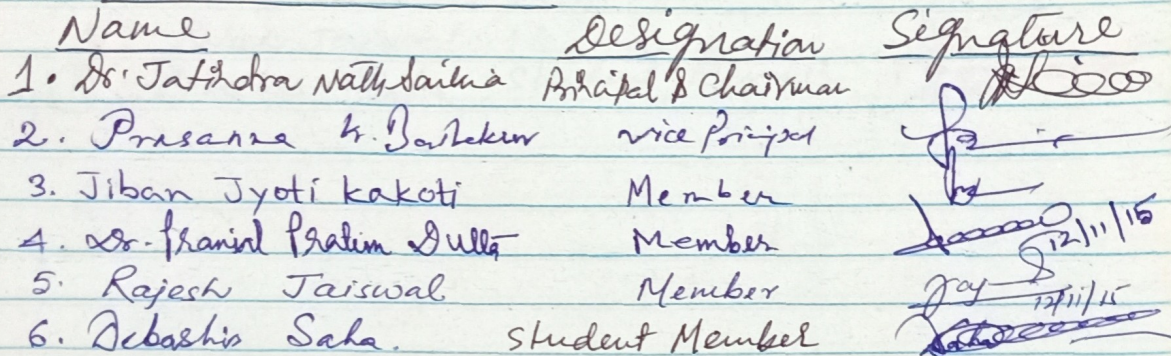 Name Designation Signature
1. Dr. Jatindra Nath Saikia Principal & Chairman
2. Prasanna Kr. Vice Principal
3. Jiban Jyoti Kakoti Member
4. Dr. Pranjal Pratim Dutta Member 12/11/15
5. Rajesh Jaiswal Member 12/11/15
6. Debashis Saha. Student Member